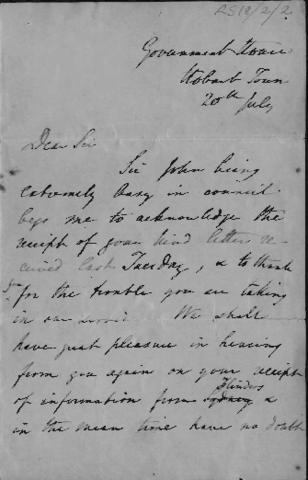 RS18/2/2
Government House
Hobart Town
20th July
Dear Sir
Sir John being
extremely busy in council
begs me to acknowledge the
receipt of your kind letter re-
ceived last Tuesday, & to thank
you
for the trouble you are taking
in our We shall
have great pleasure in hearing
from you again on your receipt
Flinders
of information from Sydney &
in the mean time have no doubt